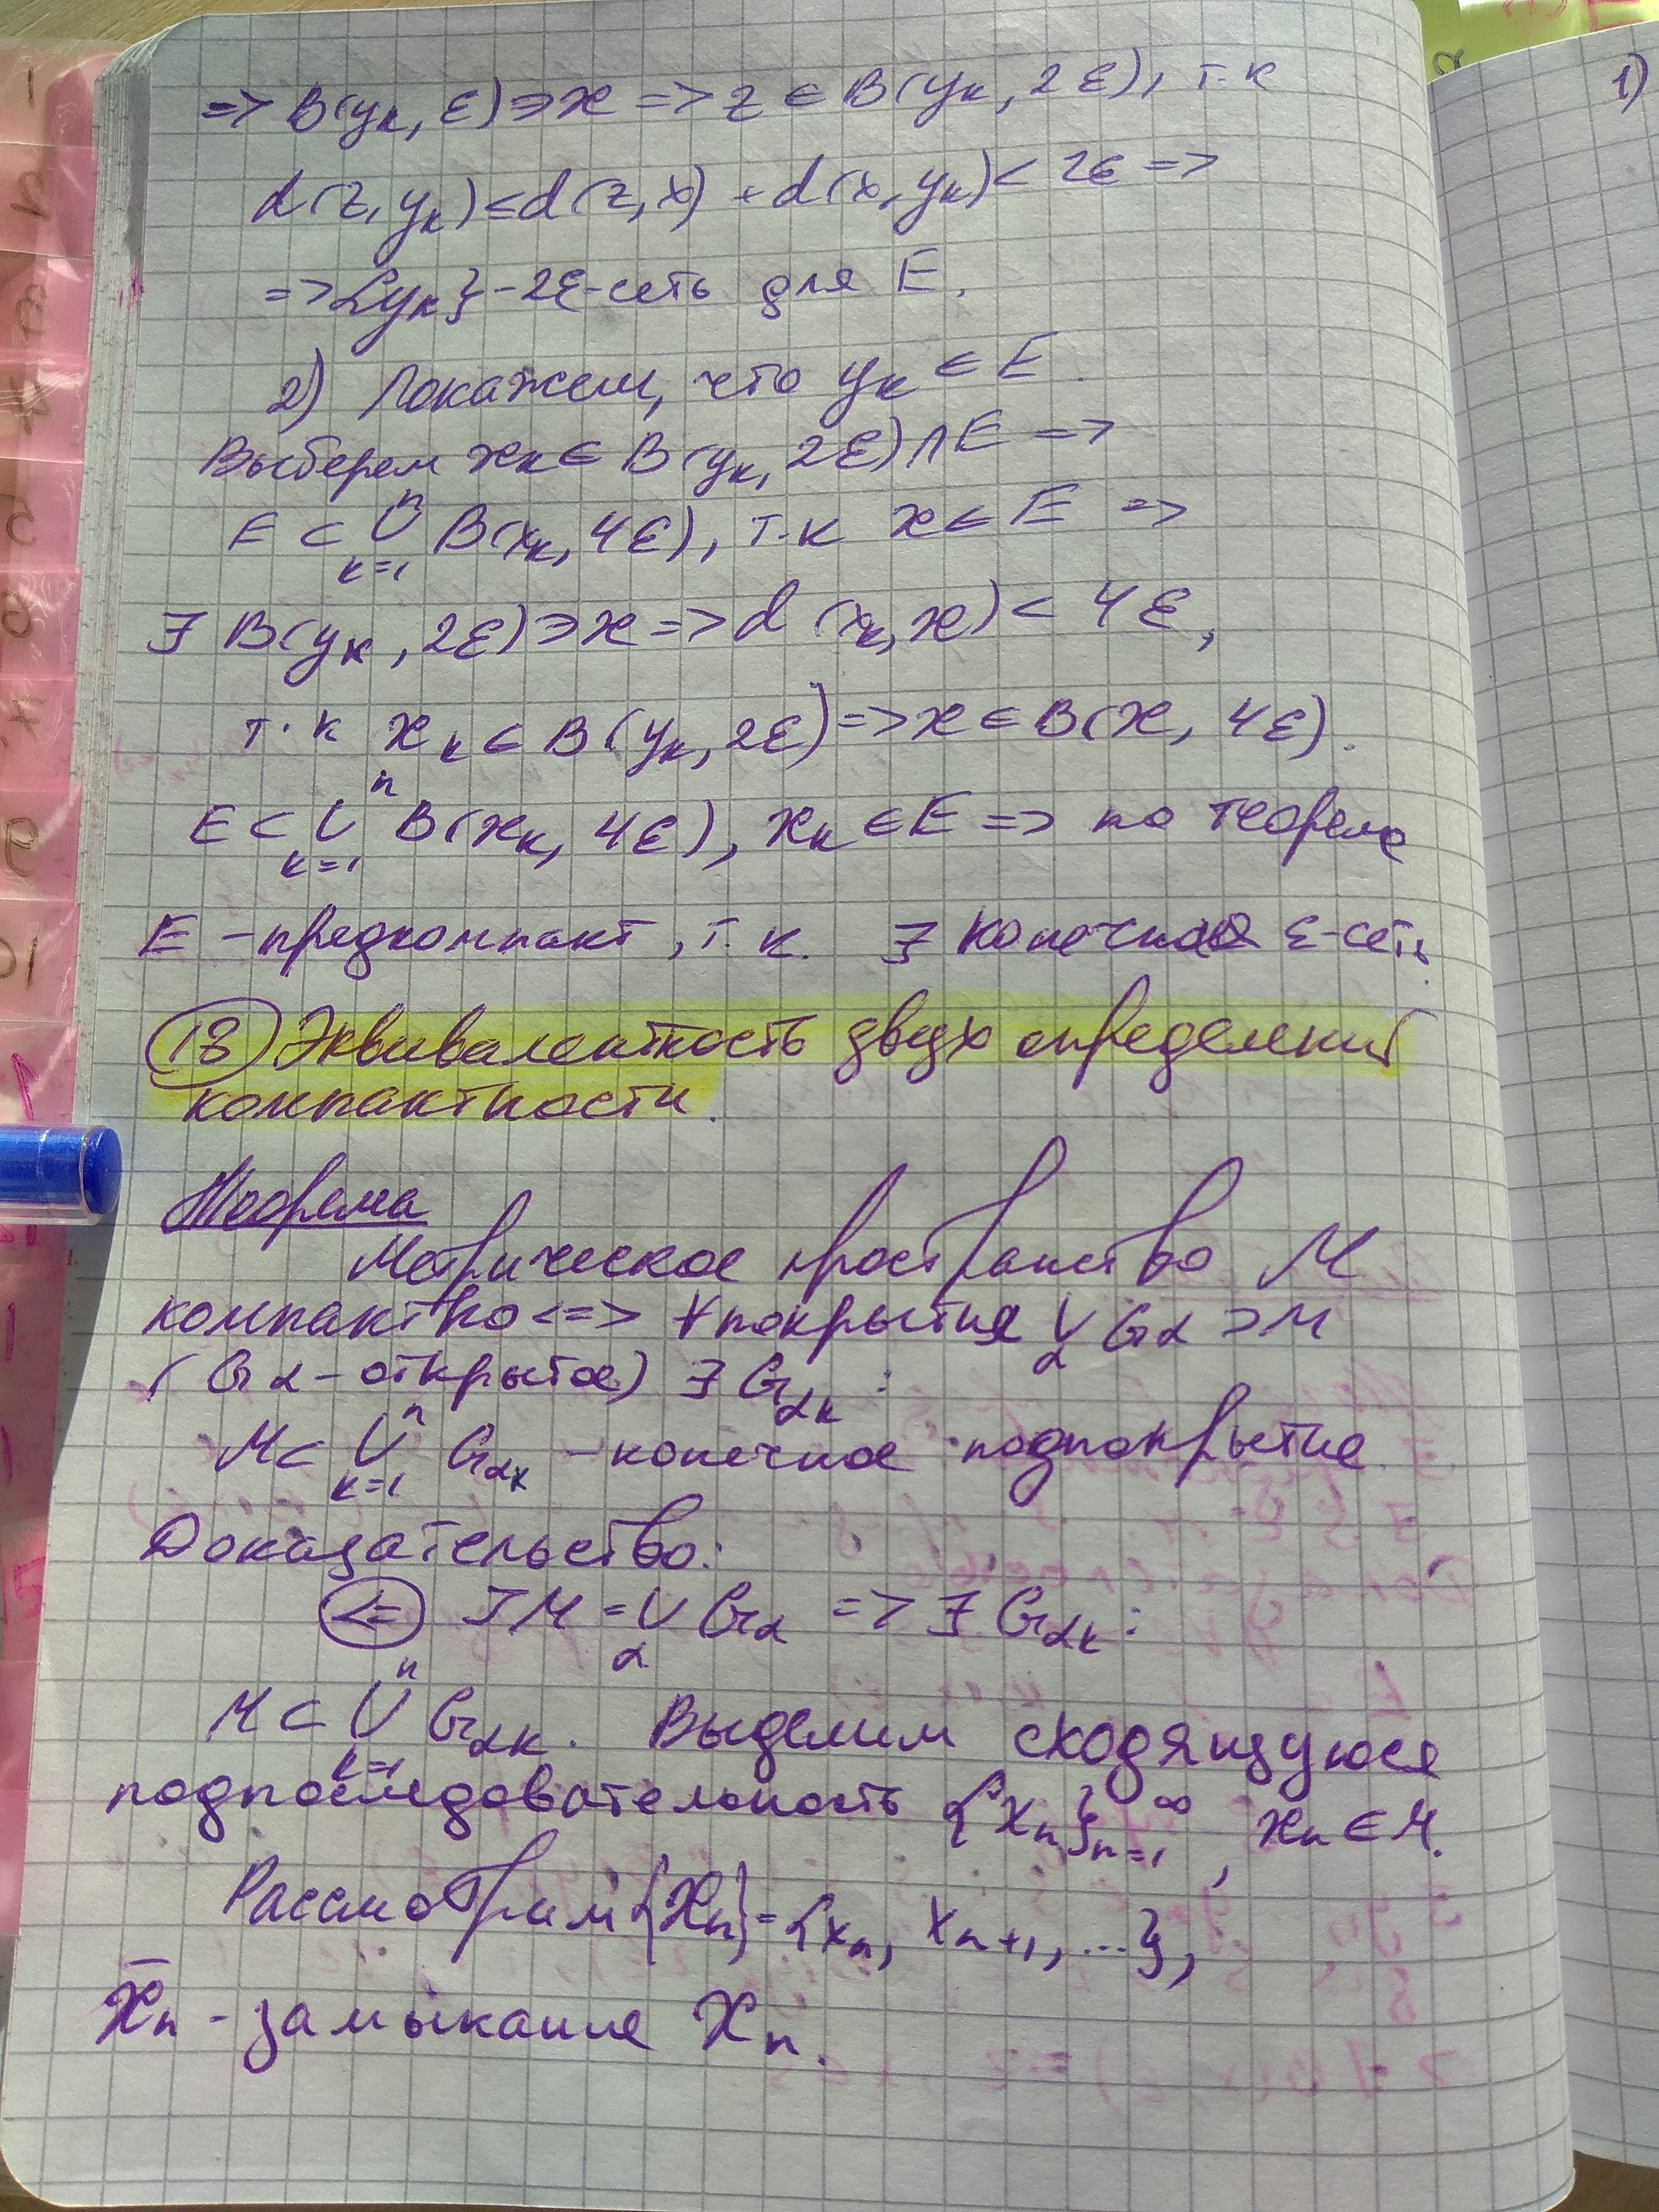 => B(yₖ, ε) ∋ x => z ∈ B(yₖ, 2ε), т.к
d(z, yₖ) ≤ d(z, x) + d(x, yₖ) < 2ε =>
=> {yₖ} - 2ε-сеть для E.
2) Покажем, что yₖ ∈ E.
Выберем xₖ ∈ B(yₖ, 2ε) ∩ E =>
E ⊂ ⋃ₖ₌₁ⁿ B(xₖ, 4ε), т.к x ∈ E =>
∃ B(yₖ, 2ε) ∋ x => d(xₖ, x) < 4ε,
т.к xₖ ∈ B(yₖ, 2ε) => x ∈ B(x, 4ε).
E ⊂ ⋃ₖ₌₁ⁿ B(xₖ, 4ε), xₖ ∈ E => по теореме
E - предкомпакт, т.к. ∃ конечная ε-сеть
18 Эквивалентность двух определений
компактности.
Теорема
Метрическое пространство M
компактно <=> ∀ покрытия ⋃_α G_α ⊃ M
(G_α - открытое) ∃ G_αₖ :
M ⊂ ⋃ₖ₌₁ⁿ G_αₖ - конечное подпокрытие.
Доказательство:
<= ] M = ⋃_α G_α => ∃ G_αₖ :
M ⊂ ⋃ₖ₌₁ⁿ G_αₖ. Выделим сходящуюся
подпоследовательность {xₙ}ₙ₌₁^∞, xₙ ∈ M.
Рассмотрим {Xₙ} = {xₙ, xₙ₊₁, ...},
X̄ₙ - замыкание Xₙ.
1)